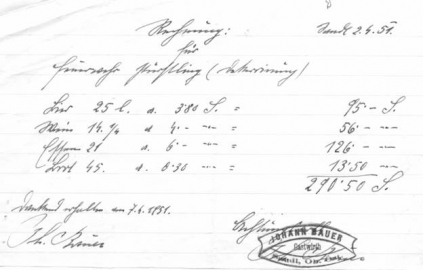 Rechnung: Sandl 2.4.51.
für
Feuerwehr Pürstling (Dekorierung)
Bier 25 l. a. 3·80 S. = 95·— S.
Wein 14 ¼ a 4·— —"— = 56·— —"—
Essen 21 a 6·— —"— = 126·— —"—
Brot 45. a. 0·30 —"— = 13·50 —"—
290·50 S.
Dankend erhalten am 7.4.1951.
Joh. Bauer
JOHANN BAUER
Gastwirt
Sandl, Ob.